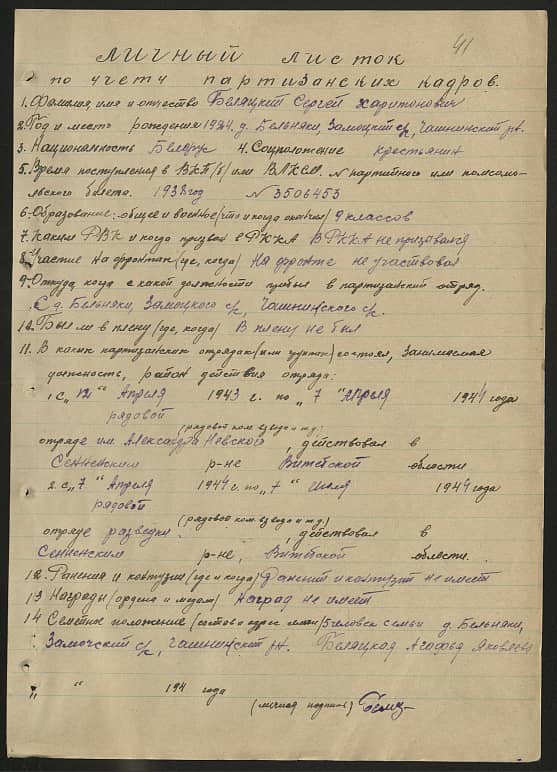 41
ЛИЧНЫЙ ЛИСТОК
по учету партизанских кадров.
1. Фамилия, имя и отчество Беляцкий Сергей Харитонович
2. Год и место рождения 1924. д. Бельняки, Замоцкий с/с, Чашникский р-н.
3. Национальность Белорус 4. Соцположение крестьянин
5. Время поступления в ВКП/б/ или ВЛКСМ. N партийного или комсомо-
льского билета. 1938 год N 3506453
6. Образование: общее и военное/что и когда окончил/ 9 классов
7. Каким РВК и когда призван в РККА В РККА не призывался
8. Участие на фронтах/где, когда/ На фронте не участвовал
9. Откуда, когда с какой должности прибыл в партизанский отряд.
С д. Бельняки, Замоцкого с/с, Чашникского р.
10. Был ли в плену/где, когда/ В плену не был
11. В каких партизанских отрядах/или группах/состоял, занимаемая
должность, район действия отряда:
1. с „12" Апреля 1943 г. по „7" Апреля 1944 года
рядовой
/рядовой ком. взвода и т.д./
отряде им. Александра Невской, действовал в
Сенненским р-не Витебской области
2. с „7" Апреля 1944 г. по „7" июля 1944 года
рядовой
/рядовой ком. взвода и т.д./
отряде разведки, действовал в
Сенненским р-не, Витебской области.
12. Ранения и контузии/где и когда/ Ранений и контузий не имеет
13 Награды/ордена и медали/ Наград не имеет
14 Семейное положение/состав и адрес семьи/ 5 человек семьи д. Бельняки,
Замочский с/с, Чашникский р-н. Беляцкая Агафья Яковлевна
„ " 194 года
/личная подпись/